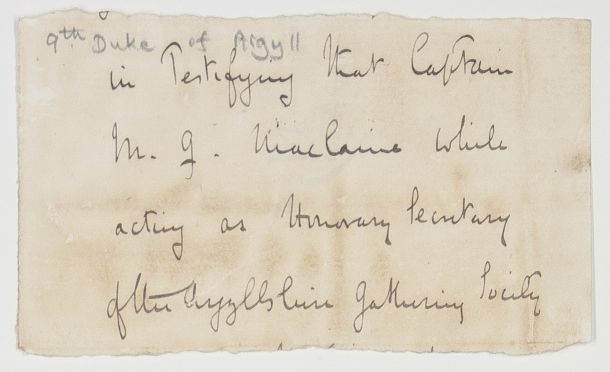 9th Duke of Argyll
in Testifying that Captain
M. G. Maclaine while
acting as Honorary Secretary
of the Argyllshire Gathering Society